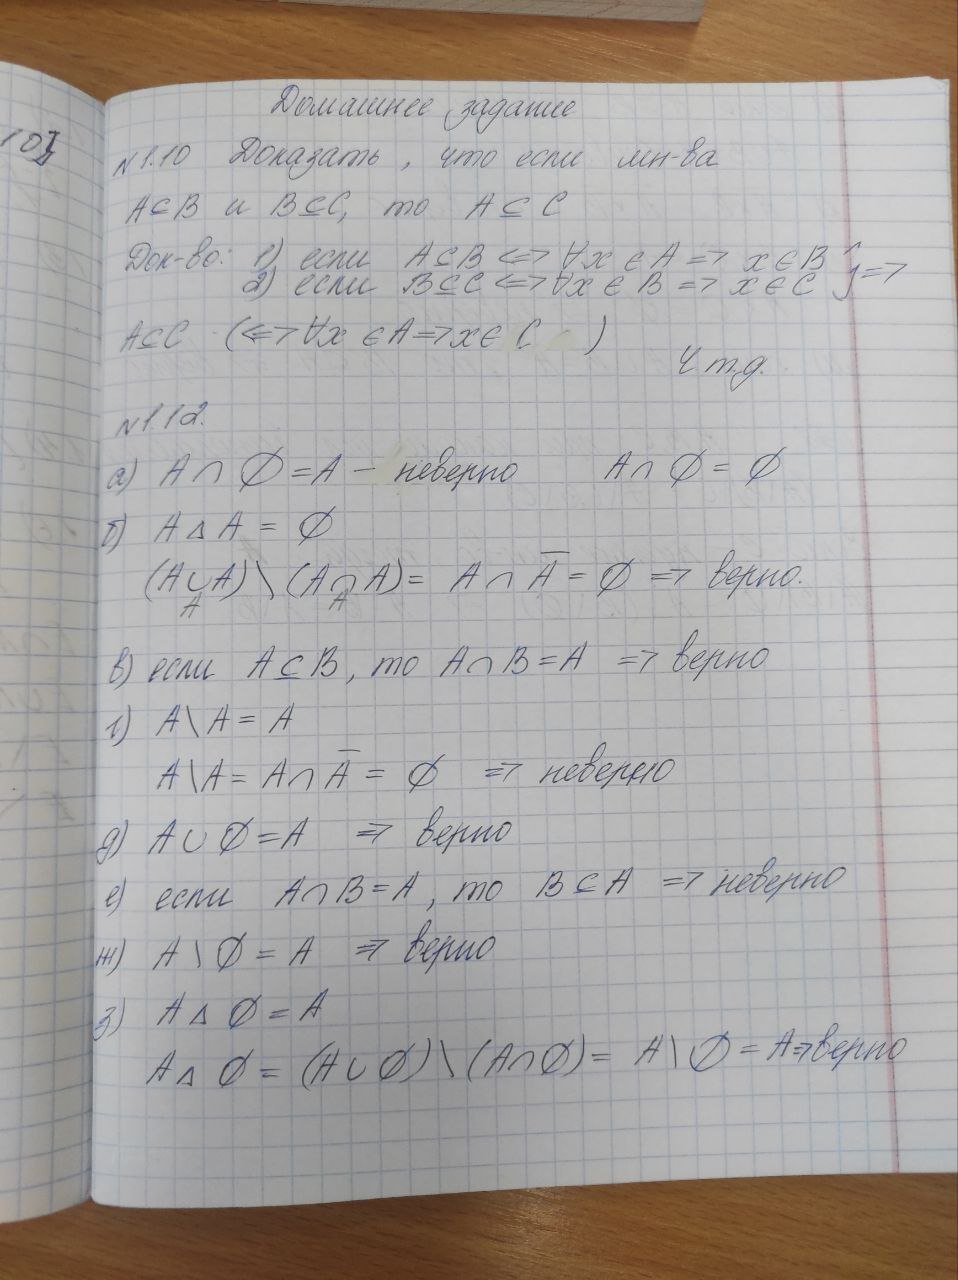 Домашнее задание
10}
N 1.10 Доказать, что если мн-ва
A⊆B и B⊆C, то A⊆C
Док-во: 1) если A⊆B <=> ∀x ∈ A => x ∈ B } =>
2) если B⊆C <=> ∀x ∈ B => x ∈ C
A⊆C (<=> ∀x ∈ A => x ∈ C )
Ч.т.д.
N 1.12.
а) A ∩ ∅ = A – неверно A ∩ ∅ = ∅
б) A Δ A = ∅
(A∪A) \ (A∩A) = A ∩ A̅ = ∅ => верно.
A A
в) если A ⊆ B, то A ∩ B = A => верно
г) A \ A = A
A \ A = A ∩ A̅ = ∅ => неверно
д) A ∪ ∅ = A => верно
е) если A ∩ B = A, то B ⊆ A => неверно
ж) A \ ∅ = A => верно
з) A Δ ∅ = A
A Δ ∅ = (A ∪ ∅) \ (A ∩ ∅) = A \ ∅ = A => верно